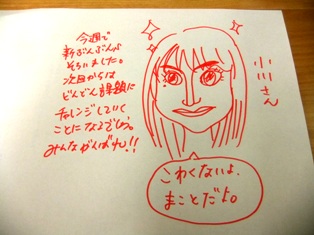 今週で
新ぶんぶんが
そろいました。
次回からは
どんどん課題に
チャレンジしていく
ことになるでしょう。
みんながんばれ!!
小川さん
こわくないよ、
まことだよ。